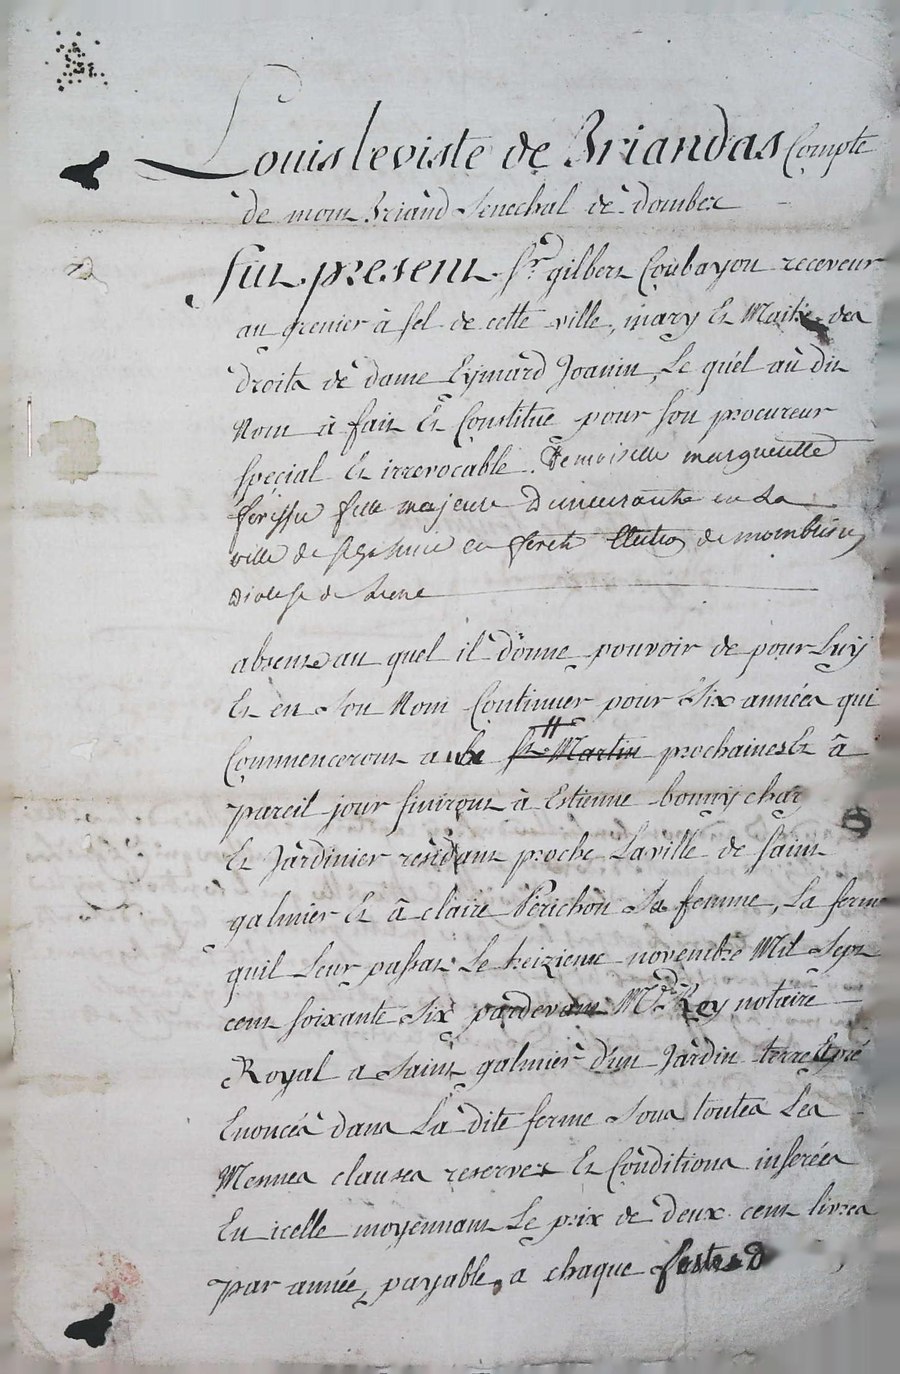 Louis leviste de Briandas Compte
de mom Briand Senechal de dombes
fut present Sr. gilbert Coubayon receveur
au grenier à sel de cette ville, mary Et Maitre des
droits de dame Eymard Joanin, Le quel au dit
Nom à fait Et Constitué pour son procureur
special Et irrevocable. Demoiselle margueritte
fille majeure Demeurante en La
ville de St galmier en forest Election de montbrison
Diocese de
absent au quel il donne pouvoir de pour Luy
Et en son Nom Continuer pour six années qui
Commenceront a la St Martin prochaines Et à
pareil jour finiront à Estienne bonny char
Et Jardinier residant proche La ville de saint
galmier Et à claire Perichon Sa femme, La ferme
quil Leur passat Le treizieme novembre Mil Sept
cent soixante Six pardevant Me Rey notaire
Royal a saint galmier d'un Jardin terre Et pré
Enoncés dans La dite ferme sous toutes Les
Mesmes clauses reserves Et Conditions inserées
En icelle moyennant Le prix de deux cent livres
par année, payable, a chaque festes d